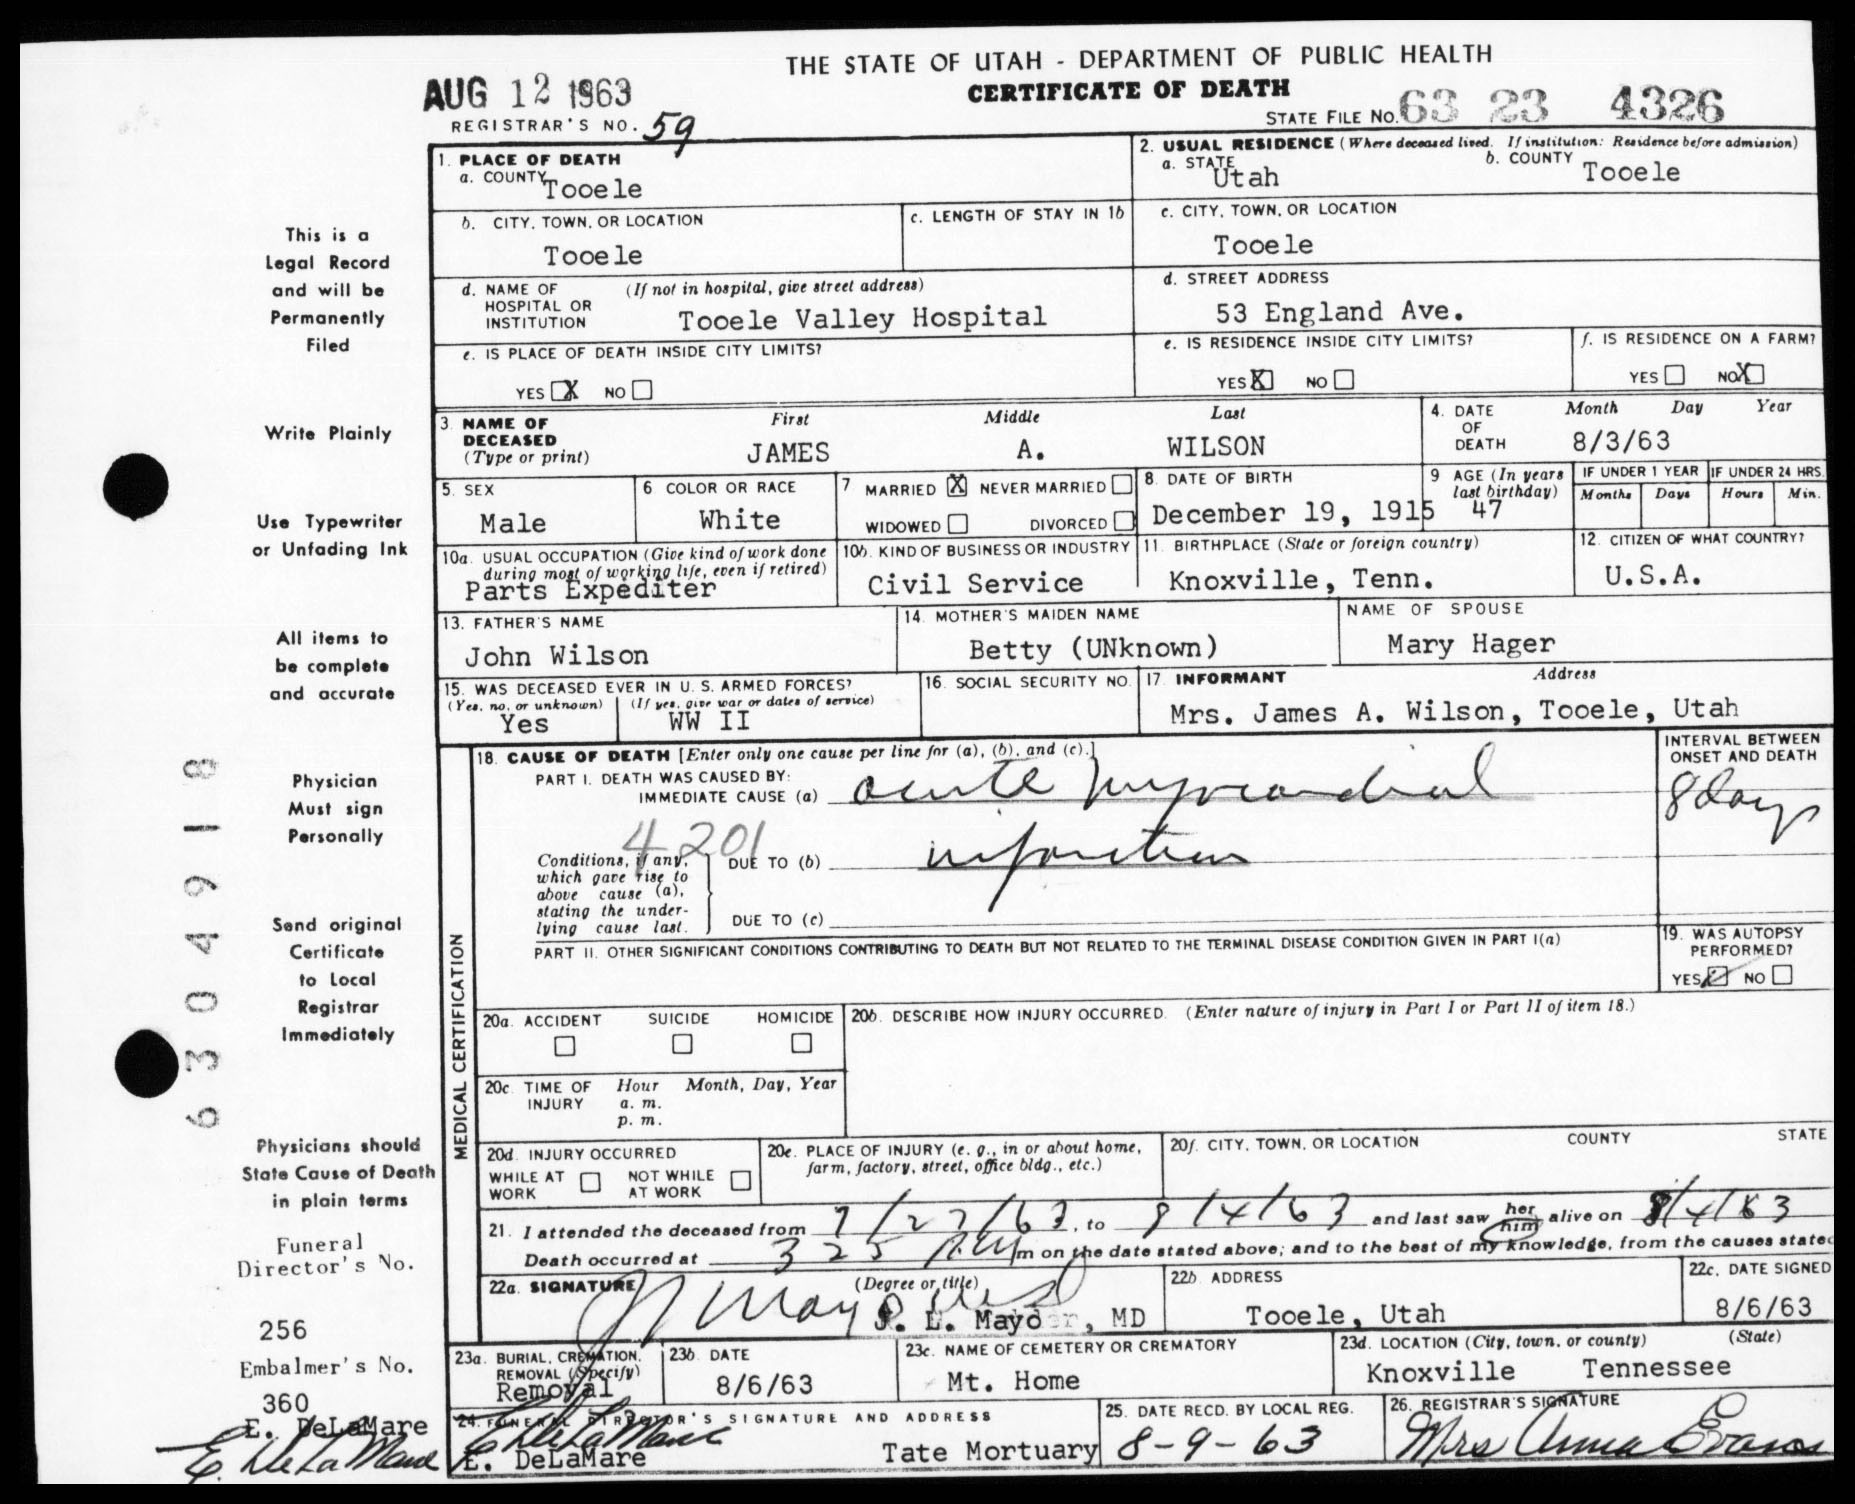 THE STATE OF UTAH - DEPARTMENT OF PUBLIC HEALTH
AUG 12 1963
CERTIFICATE OF DEATH
REGISTRAR'S NO. 59
STATE FILE NO. 63 23 4326
1. PLACE OF DEATH
a. COUNTY Tooele
2. USUAL RESIDENCE (Where deceased lived. If institution: Residence before admission)
a. STATE Utah b. COUNTY Tooele
b. CITY, TOWN, OR LOCATION Tooele
c. LENGTH OF STAY IN 1b
c. CITY, TOWN, OR LOCATION Tooele
d. NAME OF HOSPITAL OR INSTITUTION (If not in hospital, give street address)
Tooele Valley Hospital
d. STREET ADDRESS
53 England Ave.
e. IS PLACE OF DEATH INSIDE CITY LIMITS?
YES X NO
e. IS RESIDENCE INSIDE CITY LIMITS?
YES X NO
f. IS RESIDENCE ON A FARM?
YES NO X
3. NAME OF DECEASED (Type or print)
First Middle Last
JAMES A. WILSON
4. DATE OF DEATH Month Day Year
8/3/63
5. SEX
Male
6 COLOR OR RACE
White
7 MARRIED X NEVER MARRIED
WIDOWED DIVORCED
8. DATE OF BIRTH
December 19, 1915
9 AGE (In years last birthday)
47
IF UNDER 1 YEAR IF UNDER 24 HRS.
Months Days Hours Min.
10a. USUAL OCCUPATION (Give kind of work done during most of working life, even if retired)
Parts Expediter
10b. KIND OF BUSINESS OR INDUSTRY
Civil Service
11. BIRTHPLACE (State or foreign country)
Knoxville, Tenn.
12. CITIZEN OF WHAT COUNTRY?
U.S.A.
13. FATHER'S NAME
John Wilson
14. MOTHER'S MAIDEN NAME
Betty (UNknown)
NAME OF SPOUSE
Mary Hager
15. WAS DECEASED EVER IN U. S. ARMED FORCES?
(Yes, no, or unknown) (If yes, give war or dates of service)
Yes WW II
16. SOCIAL SECURITY NO.
17. INFORMANT Address
Mrs. James A. Wilson, Tooele, Utah
MEDICAL CERTIFICATION
18. CAUSE OF DEATH [Enter only one cause per line for (a), (b), and (c).]
PART I. DEATH WAS CAUSED BY:
IMMEDIATE CAUSE (a) acute myocardial
INTERVAL BETWEEN ONSET AND DEATH
8 days
4201
Conditions, if any, which gave rise to above cause (a), stating the underlying cause last.
DUE TO (b) infarction
DUE TO (c)
PART II. OTHER SIGNIFICANT CONDITIONS CONTRIBUTING TO DEATH BUT NOT RELATED TO THE TERMINAL DISEASE CONDITION GIVEN IN PART I(a)
19. WAS AUTOPSY PERFORMED?
YES NO
20a. ACCIDENT SUICIDE HOMICIDE
20b. DESCRIBE HOW INJURY OCCURRED. (Enter nature of injury in Part I or Part II of item 18.)
20c. TIME OF INJURY Hour Month, Day, Year
a. m.
p. m.
20d. INJURY OCCURRED
WHILE AT WORK NOT WHILE AT WORK
20e. PLACE OF INJURY (e. g., in or about home, farm, factory, street, office bldg., etc.)
20f. CITY, TOWN, OR LOCATION COUNTY STATE
21. I attended the deceased from 7/27/63, to 8/4/63 and last saw her him alive on 8/4/63
Death occurred at 325 A.M m on the date stated above; and to the best of my knowledge, from the causes stated
22a. SIGNATURE (Degree or title)
J. L. Mayder, MD
22b. ADDRESS
Tooele, Utah
22c. DATE SIGNED
8/6/63
23a. BURIAL, CREMATION, REMOVAL (Specify)
Removal
23b. DATE
8/6/63
23c. NAME OF CEMETERY OR CREMATORY
Mt. Home
23d. LOCATION (City, town, or county) (State)
Knoxville Tennessee
24. FUNERAL DIRECTOR'S SIGNATURE AND ADDRESS
E. DeLaMare
E. DeLaMare Tate Mortuary
25. DATE RECD. BY LOCAL REG.
8-9-63
26. REGISTRAR'S SIGNATURE
Mrs Anna Evans
This is a
Legal Record
and will be
Permanently
Filed
Write Plainly
Use Typewriter
or Unfading Ink
All items to
be complete
and accurate
Physician
Must sign
Personally
Send original
Certificate
to Local
Registrar
Immediately
Physicians should
State Cause of Death
in plain terms
Funeral
Director's No.
256
Embalmer's No.
360
E. DeLaMare
E. DeLaMare
6304918